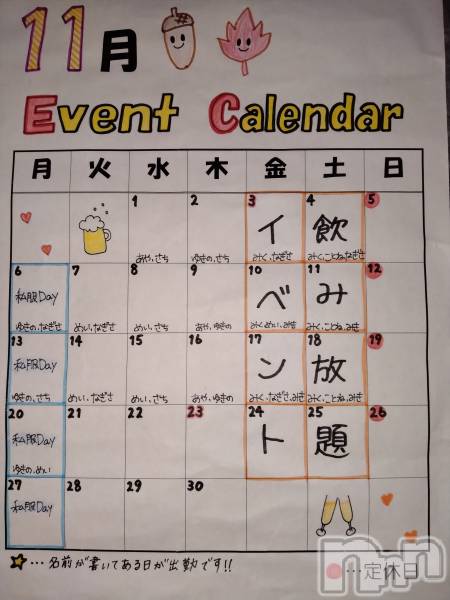 11月
Event Calendar
月 火 水 木 金 土 日
1 2 3 4 5
イ 飲
あや、さち ゆきの、さち みく、なぎさ みく、ことね、なぎさ
6 7 8 9 10 11 12
私服Day ベ み
ゆきの、なぎさ めい、なぎさ めい、さち あや、ゆきの みく、めい、みき みく、ことね、みき
13 14 15 16 17 18 19
私服Day ン 放
ゆきの、さち めい、なぎさ めい、さち あや、ゆきの みく、なぎさ、みき みく、ことね、みき
20 21 22 23 24 25 26
私服Day ト 題
ゆきの、めい
27 28 29 30
私服Day
…名前が書いてある日が出勤です!!
…定休日